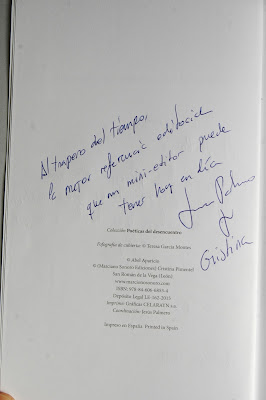 Al trapero del tiempo,
la mejor referencia editorial
que un mini-editor puede
tener hoy en día
y
Cristina
Colección Poéticas del desencuentro
Fotografía de cubierta: © Teresa García Montes
© Abel Aparicio
© (Marciano Sonoro Ediciones) Cristina Pimentel
San Román de la Vega (León)
www.marcianosonoro.com
Depósito Legal LE-
Imprime: Gráficas CELARAYN s.a.
Coordinación: Jesús Palmero
Impreso en España. Printed in Spain